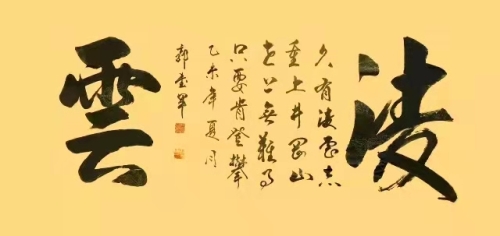 凌
久有凌雲志
重上井岡山
世上無難事
只要肯登攀
乙未年夏月
雲